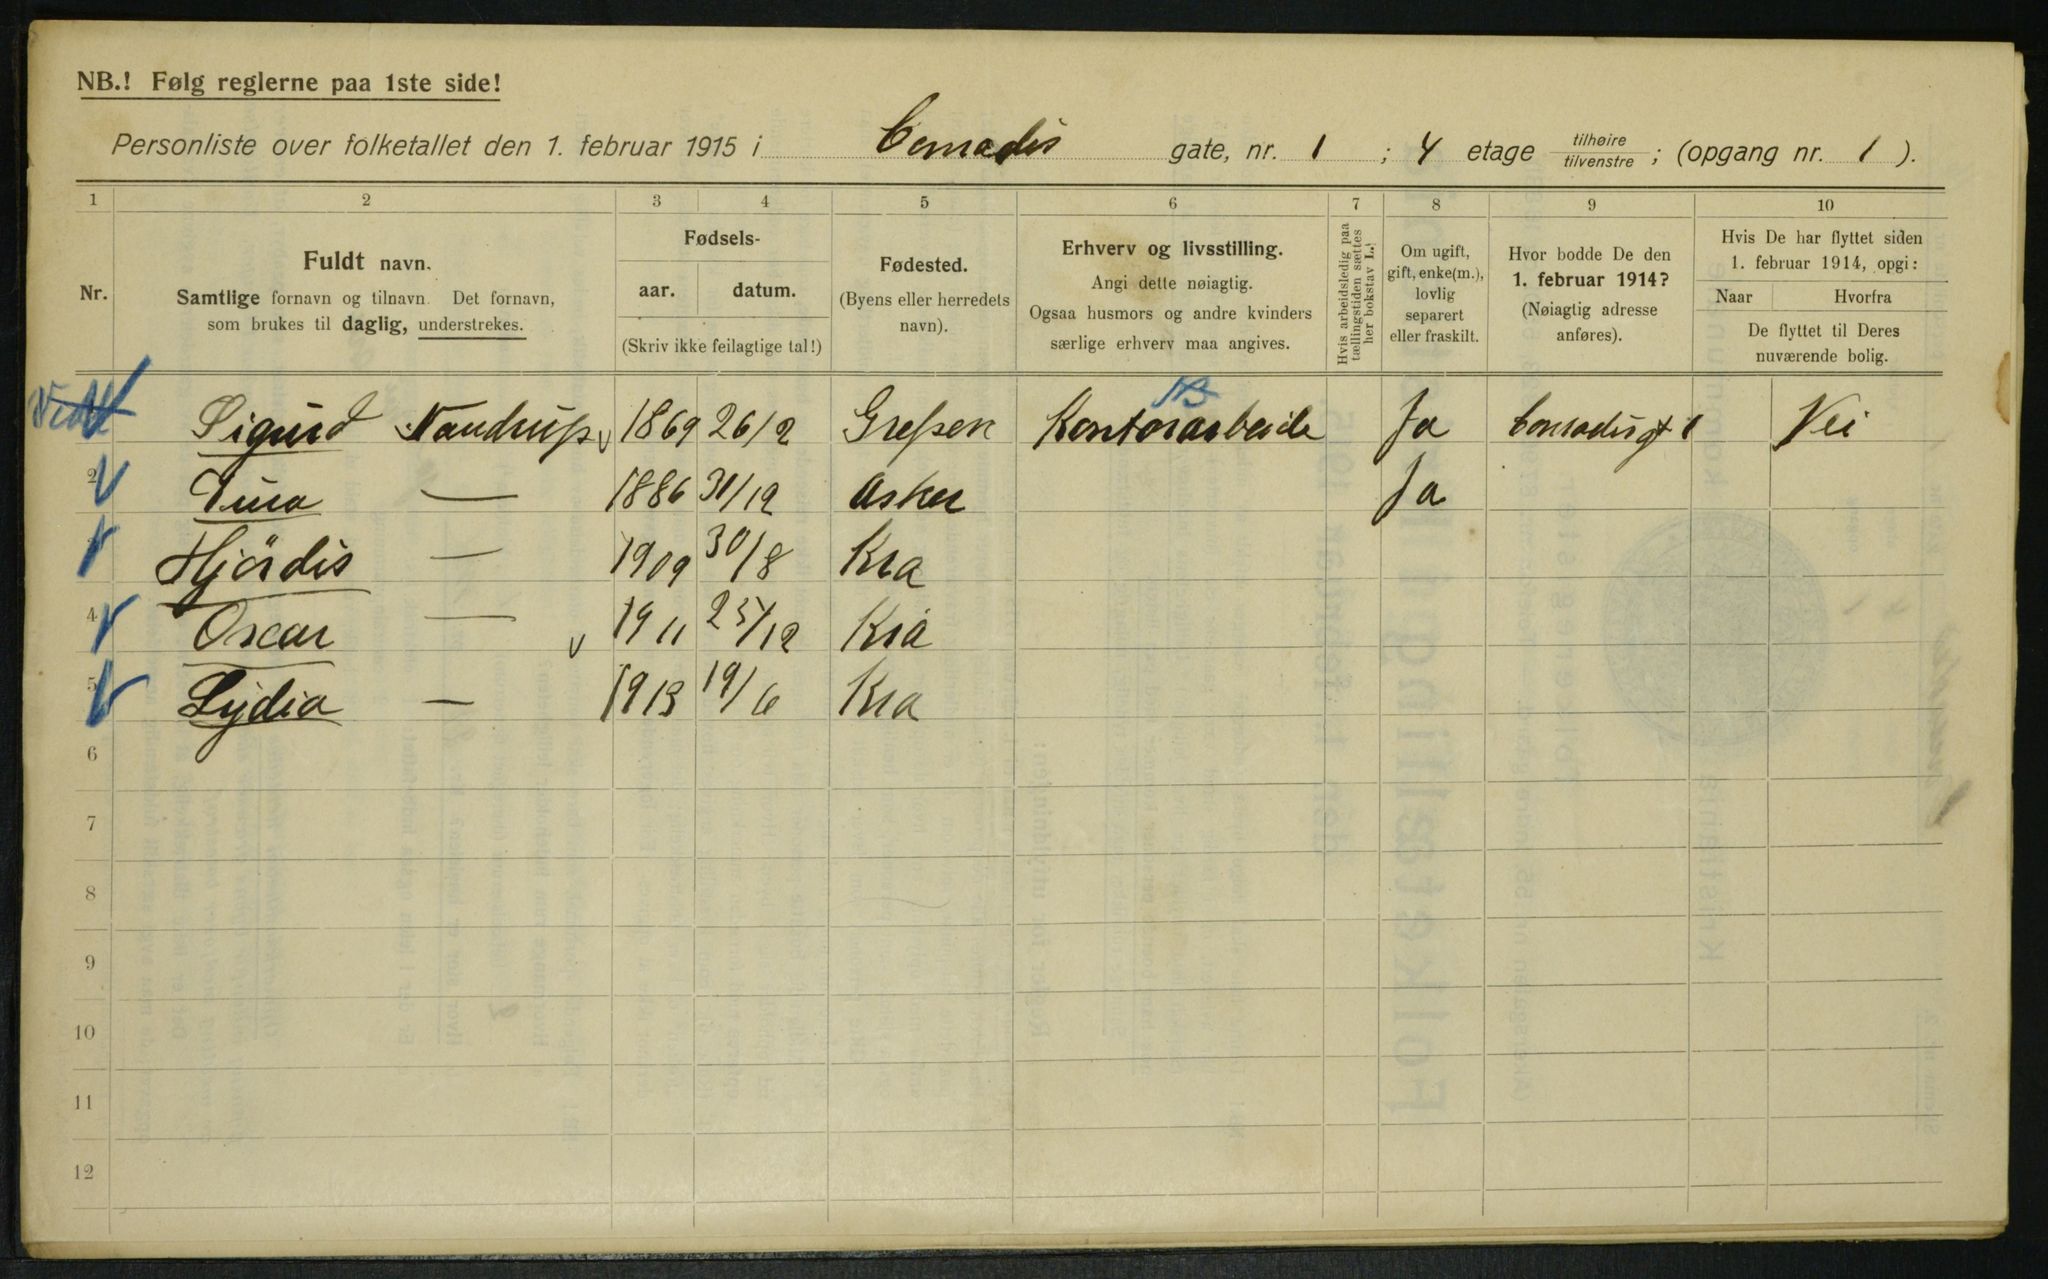 NB.! Følg reglerne paa 1ste side!
Personliste over folketallet den 1. februar 1915 i Conradis gate, nr. 1 ; 4 etage tilhøire/tilvenstre ; (opgang nr. 1 ).
1 2 3 4 5 6 7 8 9 10
Nr.
Fuldt navn.
Samtlige fornavn og tilnavn. Det fornavn,
som brukes til daglig, understrekes.
Fødsels-
aar. datum.
(Skriv ikke feilagtige tal!)
Fødested.
(Byens eller herredets
navn).
Erhverv og livsstilling.
Angi dette nøiagtig.
Ogsaa husmors og andre kvinders
særlige erhverv maa angives.
Hvis arbeidsledig paa
tællingstiden sættes
her bokstav L.!
Om ugift,
gift, enke(m.),
lovlig
separert
eller fraskilt.
Hvor bodde De den
1. februar 1914?
(Nøiagtig adresse
anføres).
Hvis De har flyttet siden
1. februar 1914, opgi:
Naar Hvorfra
De flyttet til Deres
nuværende bolig.
Sigurd Nandrup 1869 26/2 Grefsen Kontorarbeide Ja Conradisgt 1 Nei
2 — 1886 31/12 Asker Ja
Hjördis — 1909 30/8 Kra
4 Oscar — 1911 25/12 Kra
5 Lydia — 1913 19/6 Kra
6
7
8
9
10
11
12